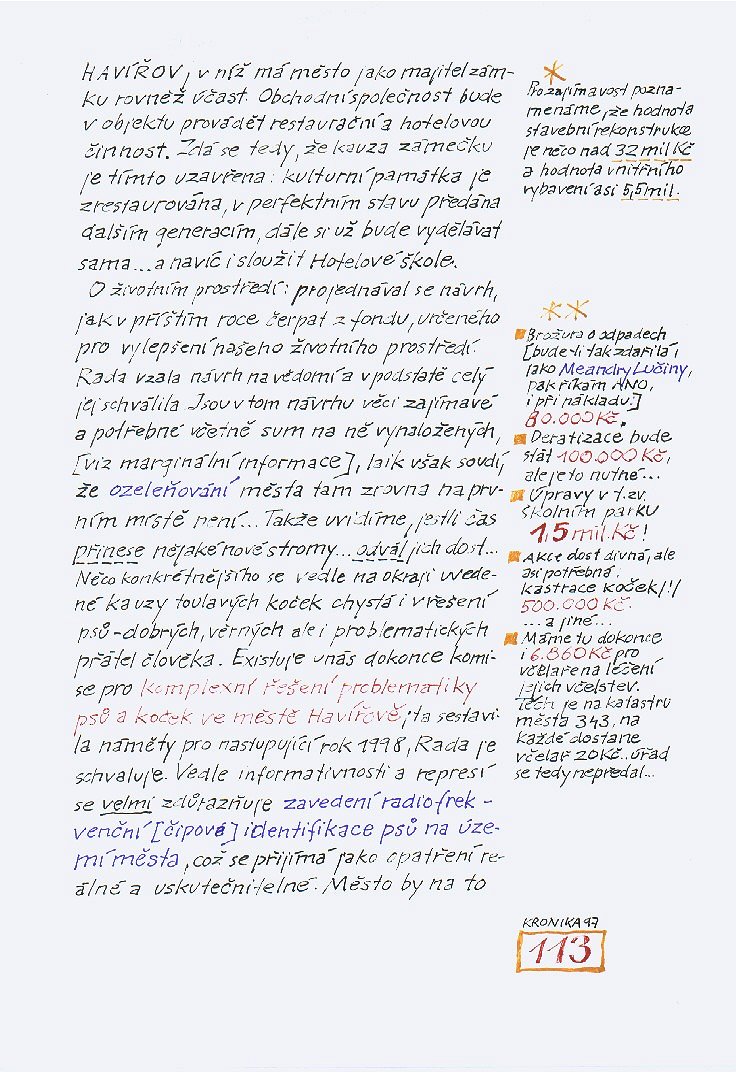 HAVÍŘOV, v níž má město jako majitel zám-
ku rovněž účast. Obchodní společnost bude
v objektu provádět restaurační a hotelovou
činnost. Zdá se tedy, že kauza zámečku
je tímto uzavřena: kulturní památka je
zrestaurována, v perfektním stavu předána
dalším generacím, dále si už bude vydělávat
sama...a navíc i sloužit Hotelové škole.
O životním prostředí: projednával se návrh,
jak v příštím roce čerpat z fondu, určeného
pro vylepšení našeho životního prostředí.
Rada vzala návrh na vědomí a v podstatě celý
jej schválila. Jsou v tom návrhu věci zajímavé
a potřebné včetně sum na ně vynaložených,
[viz marginální informace], laik však soudí,
že ozeleňování města tam zrovna na prv-
ním místě není... Takže uvidíme, jestli čas
přinese nějaké nové stromy...odvál jich dost...
Něco konkrétnějšího se vedle na okraji uvede-
né kauzy toulavých koček chystá i v řešení
psů-dobrých, věrných ale i problematických
přátel člověka. Existuje u nás dokonce komi-
se pro komplexní řešení problematiky
psů a koček ve městě Havířově, ta sestavi-
la náměty pro nastupující rok 1998, Rada je
schvaluje. Vedle informativnosti a represí
se velmi zdůrazňuje zavedení radiofrek-
venční [čipové] identifikace psů na úze-
mí města, což se přijímá jako opatření re-
álné a uskutečnitelné. Město by na to
*
Pro zajímavost pozna-
menáme, že hodnota
stavební rekonstrukce
je něco nad 32 mil Kč
a hodnota vnitřního
vybavení asi 5,5 mil.
**
Brožura o odpadech
[bude-li tak zdařilá,
jako Meandry Lučiny,
pak říkám ANO,
i při nákladu:]
80.000 Kč.
Deratizace bude
stát 100.000 Kč,
ale je to nutné...
Úpravy v t.zv.
školním parku
1,5 mil. Kč!
Akce dost divná, ale
asi potřebná:
kastrace koček /!/
500.000 Kč.
...a jiné...
Máme tu dokonce
i 6.860 Kč pro
včelaře na léčení
jejich včelstev.
Těch je na katastru
města 343, na
každé dostane
včelař 20 Kč...úřad
se tedy nepředal...
KRONIKA 97
113